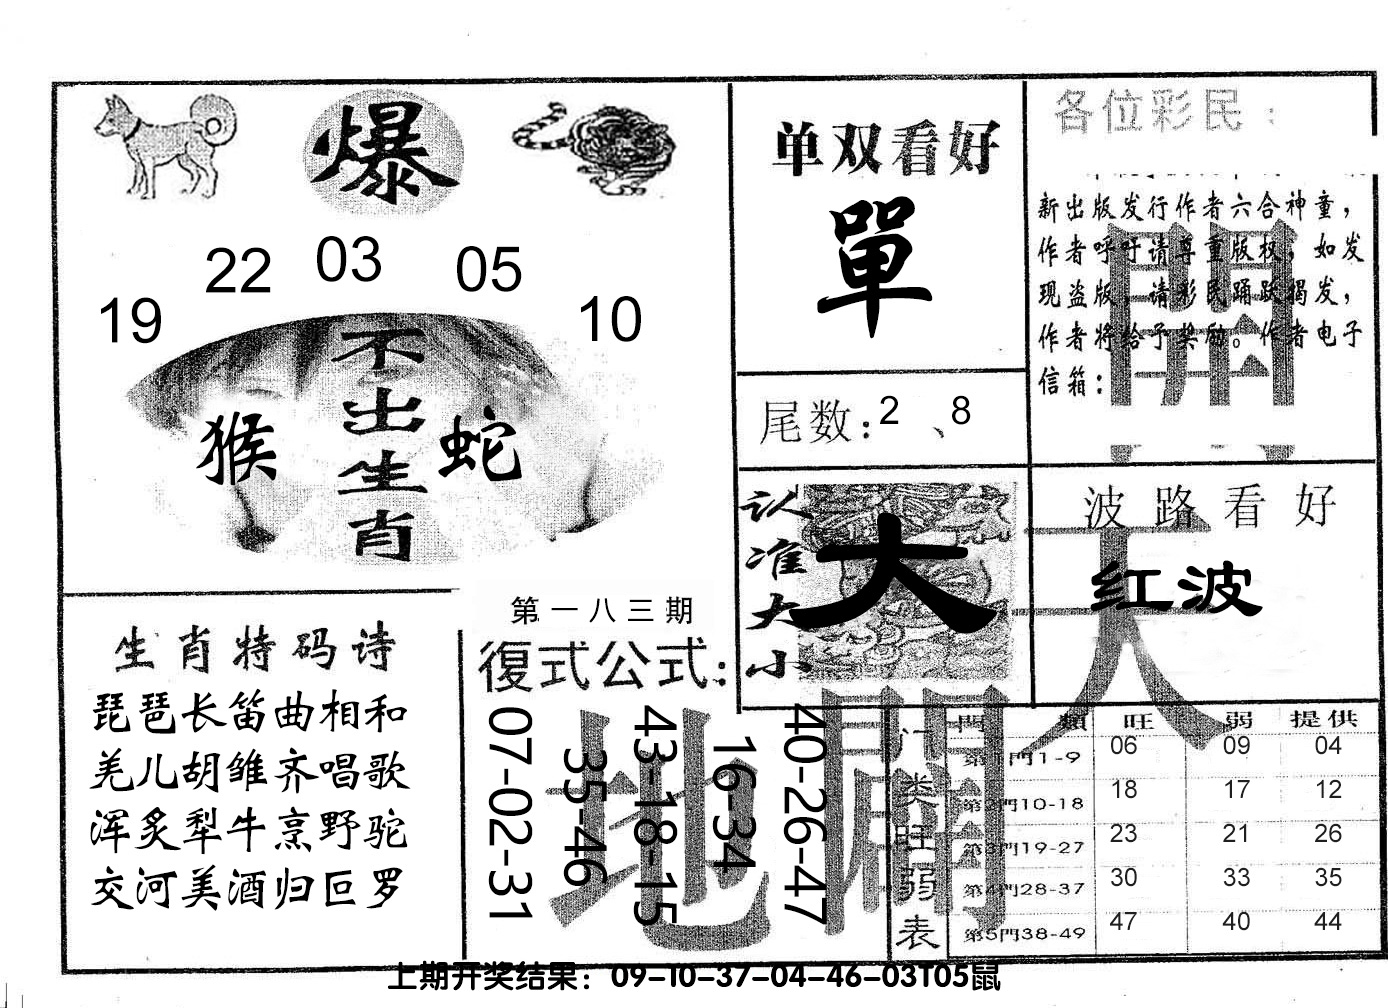 爆
22 03 05
19 10
不出生肖
猴 蛇
单双看好
單
尾数：2 、8
各位彩民：
新出版发行作者六合神童，
作者呼吁请尊重版权，如发
现盗版，请彩民踊跃揭发，
作者将给予奖励。作者电子
信箱：
開
认准大小
大
波路看好
红波
天
生肖特码诗
琵琶长笛曲相和
羌儿胡雏齐唱歌
浑炙犁牛烹野驼
交河美酒归叵罗
第一八三期
復式公式：
07-02-31
35-46
43-18-15
16-34
40-26-47
地
闢
门类旺弱表
門類 旺 弱 提供
第1門1-9 06 09 04
第2門10-18 18 17 12
第3門19-27 23 21 26
第4門28-37 30 33 35
第5門38-49 47 40 44
上期开奖结果：09-10-37-04-46-03T05鼠